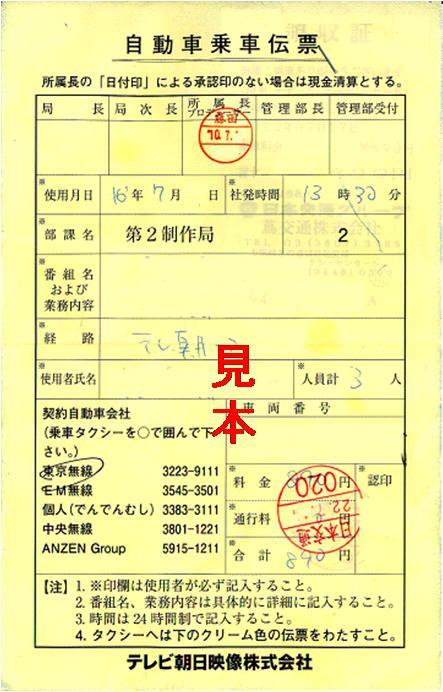 自動車乗車伝票
所属長の「日付印」による承認印のない場合は現金清算とする。
局 長 局次長 所属長 プロデューサー 管理部長 管理部受付
※使用月日 16年 7月 日 ※社発時間 13時30分
※部課名 第2制作局 2
※番組名
および
業務内容
※経路 テレ朝
※使用者氏名 ※人員計 3人
見本
契約自動車会社 車両番号
(乗車タクシーを○で囲んで下
さい。)
東京無線 3223-9111
EM無線 3545-3501
個人(でんでんむし) 3383-3111
中央無線 3801-1221
ANZEN Group 5915-1211
※料金 円 ※認印
※通行料 円
※合計 840円
日本交通
020
【注】 1. ※印欄は使用者が必ず記入すること。
2. 番組名、業務内容は具体的に詳細に記入すること。
3. 時間は24時間制で記入すること。
4. タクシーへは下のクリーム色の伝票をわたすこと。
テレビ朝日映像株式会社